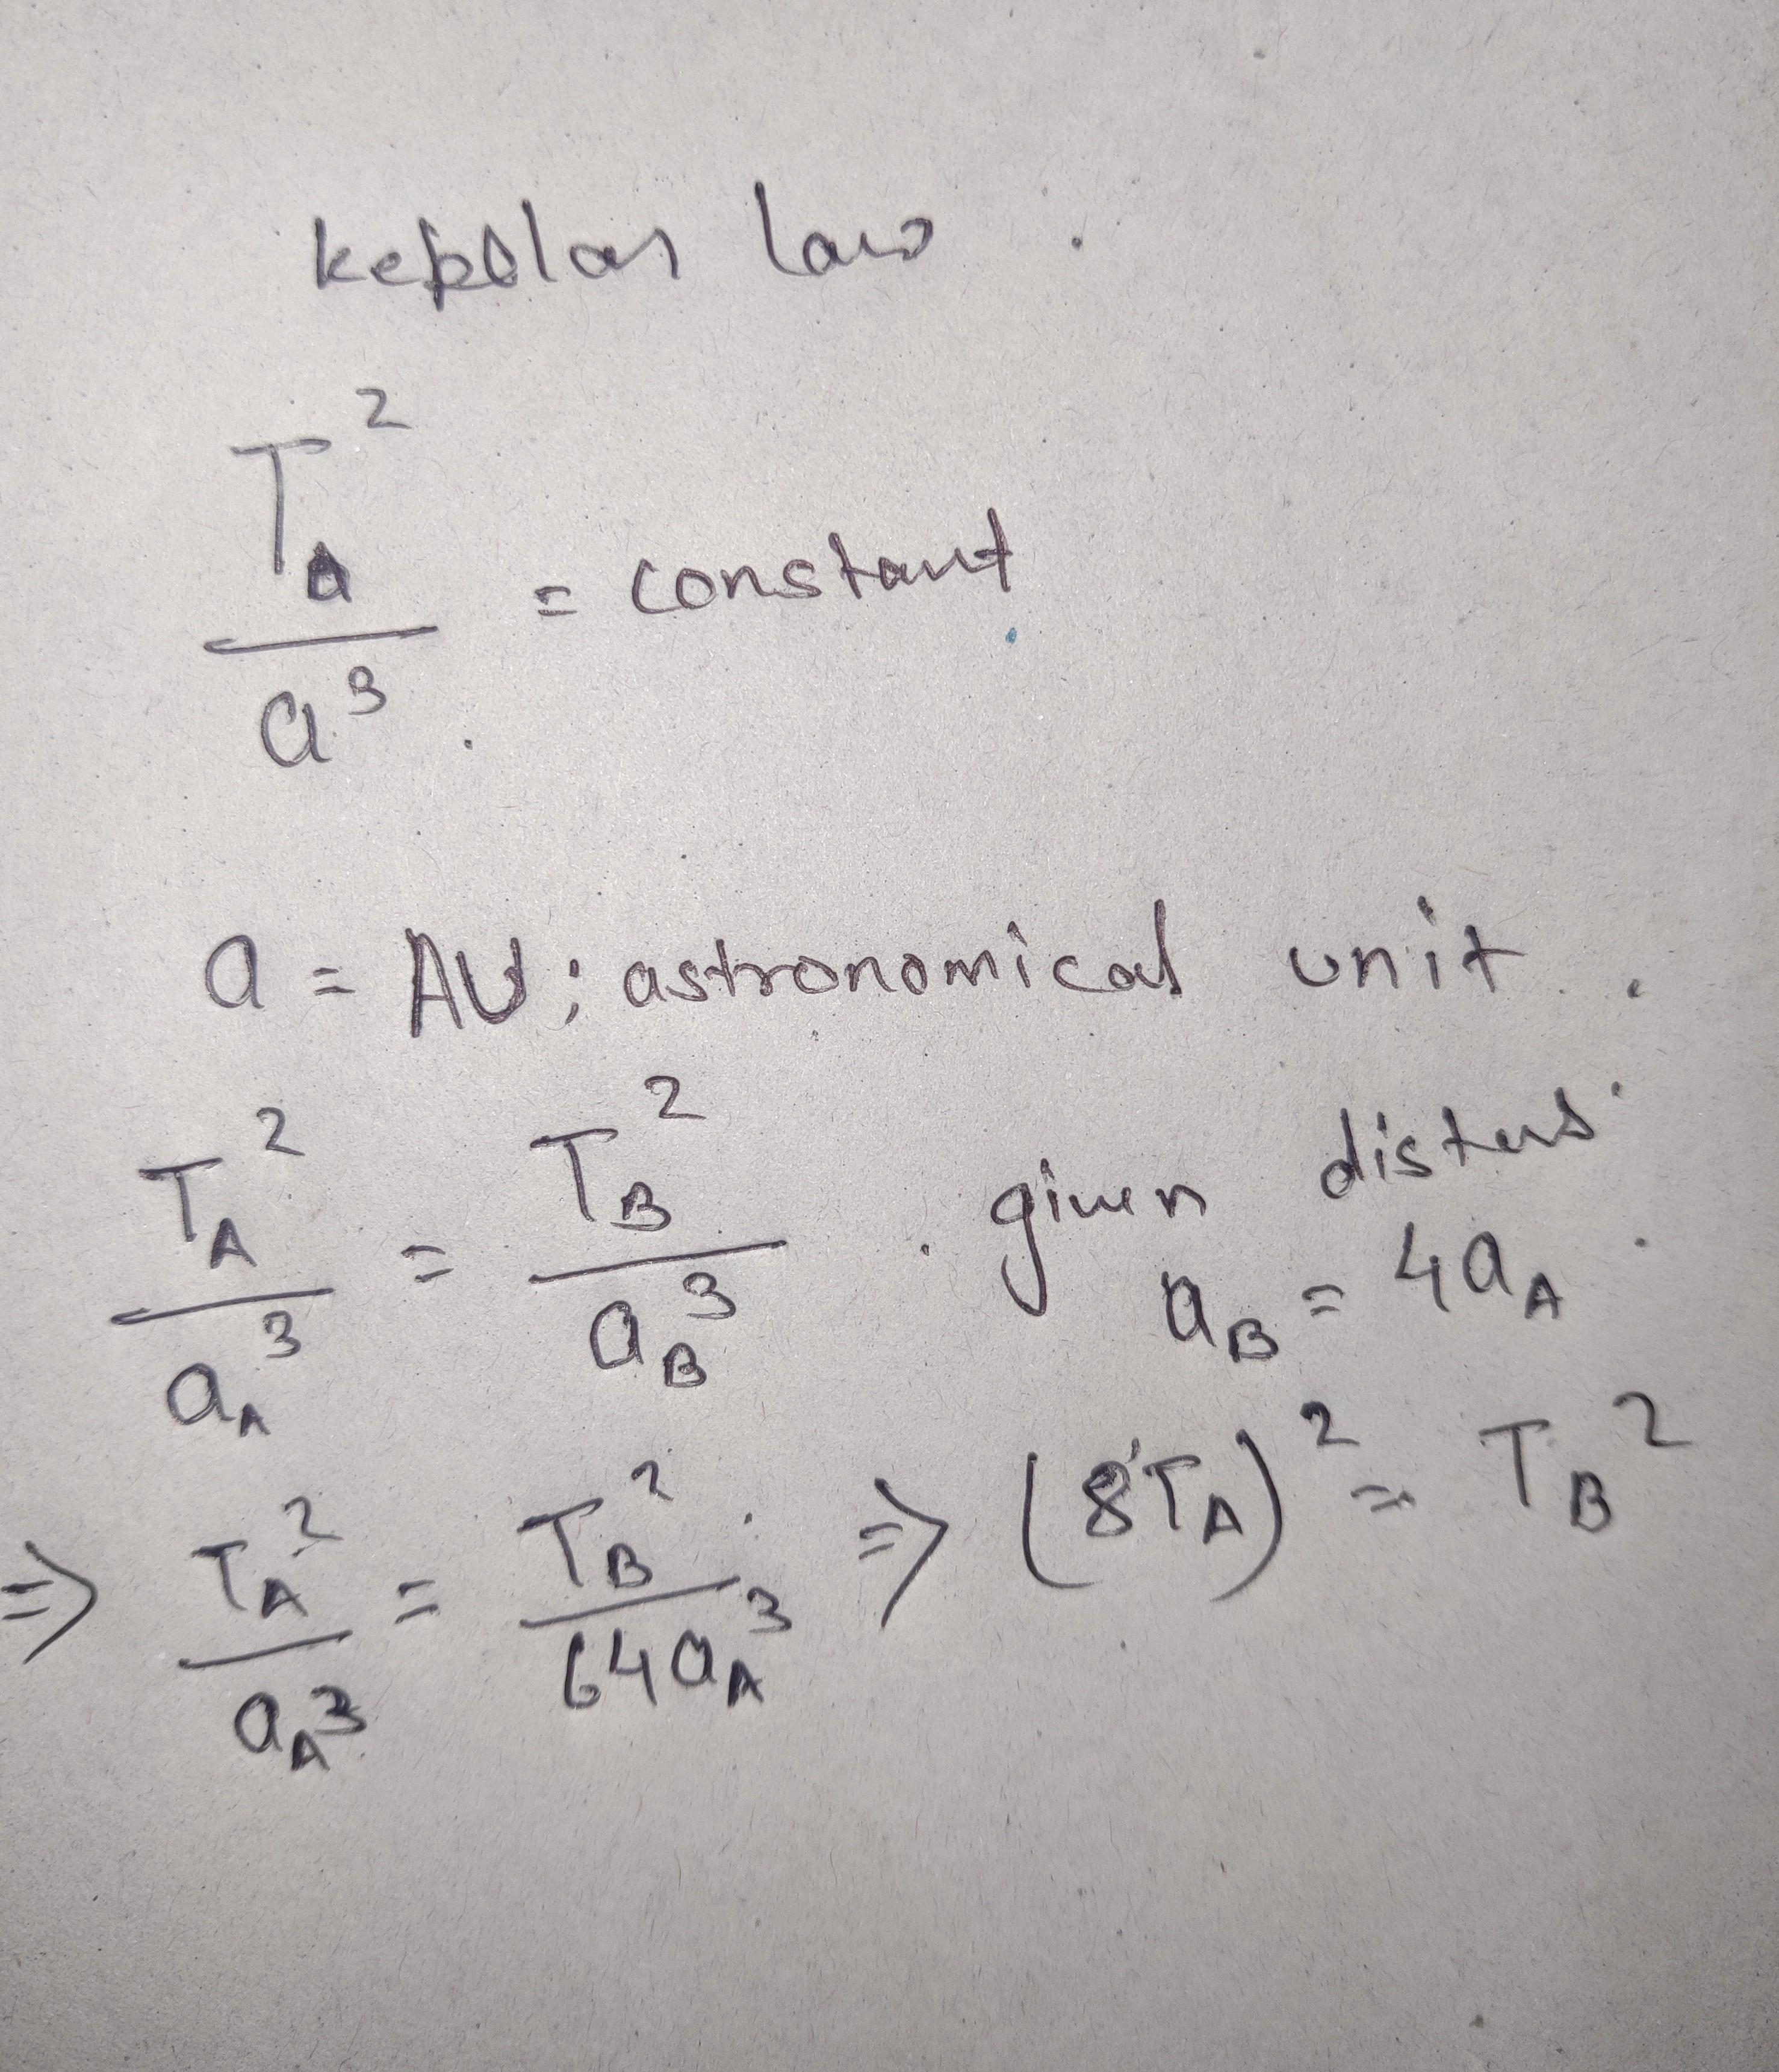 kepblar law .
T_A^2 / a^3 = constant
a = AU ; astronomical unit .
T_A^2 / a_A^3 = T_B^2 / a_B^3 . given
a_B = 4a_A .
⇒ T_A^2 / a_A^3 = T_B^2 / 64a_A^3 ⇒ (8T_A)^2 = T_B^2